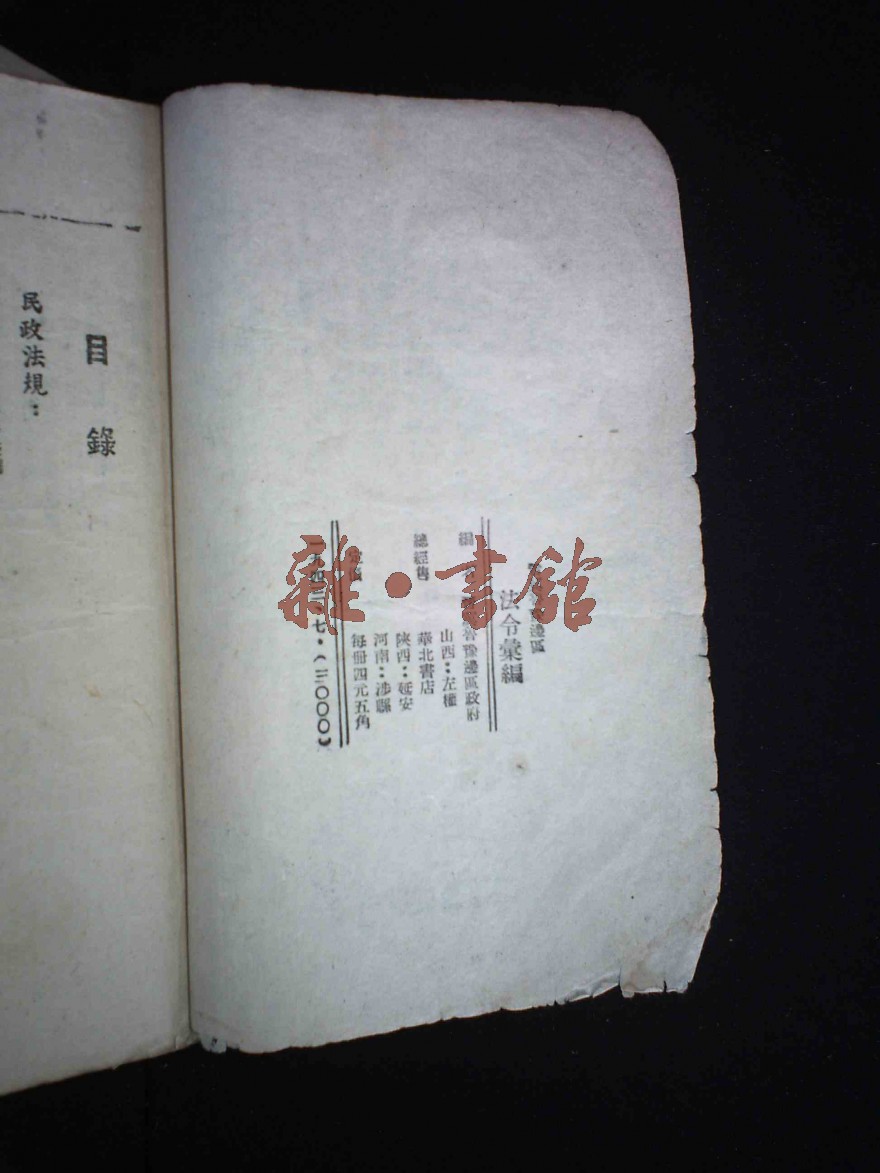 邊區
法令彙編
魯豫邊區政府
山西：左權
總經售
華北書店
陝西：延安
河南：涉縣
每冊四元五角
七・（三〇〇〇）
目錄
民政法規：
雜・書館